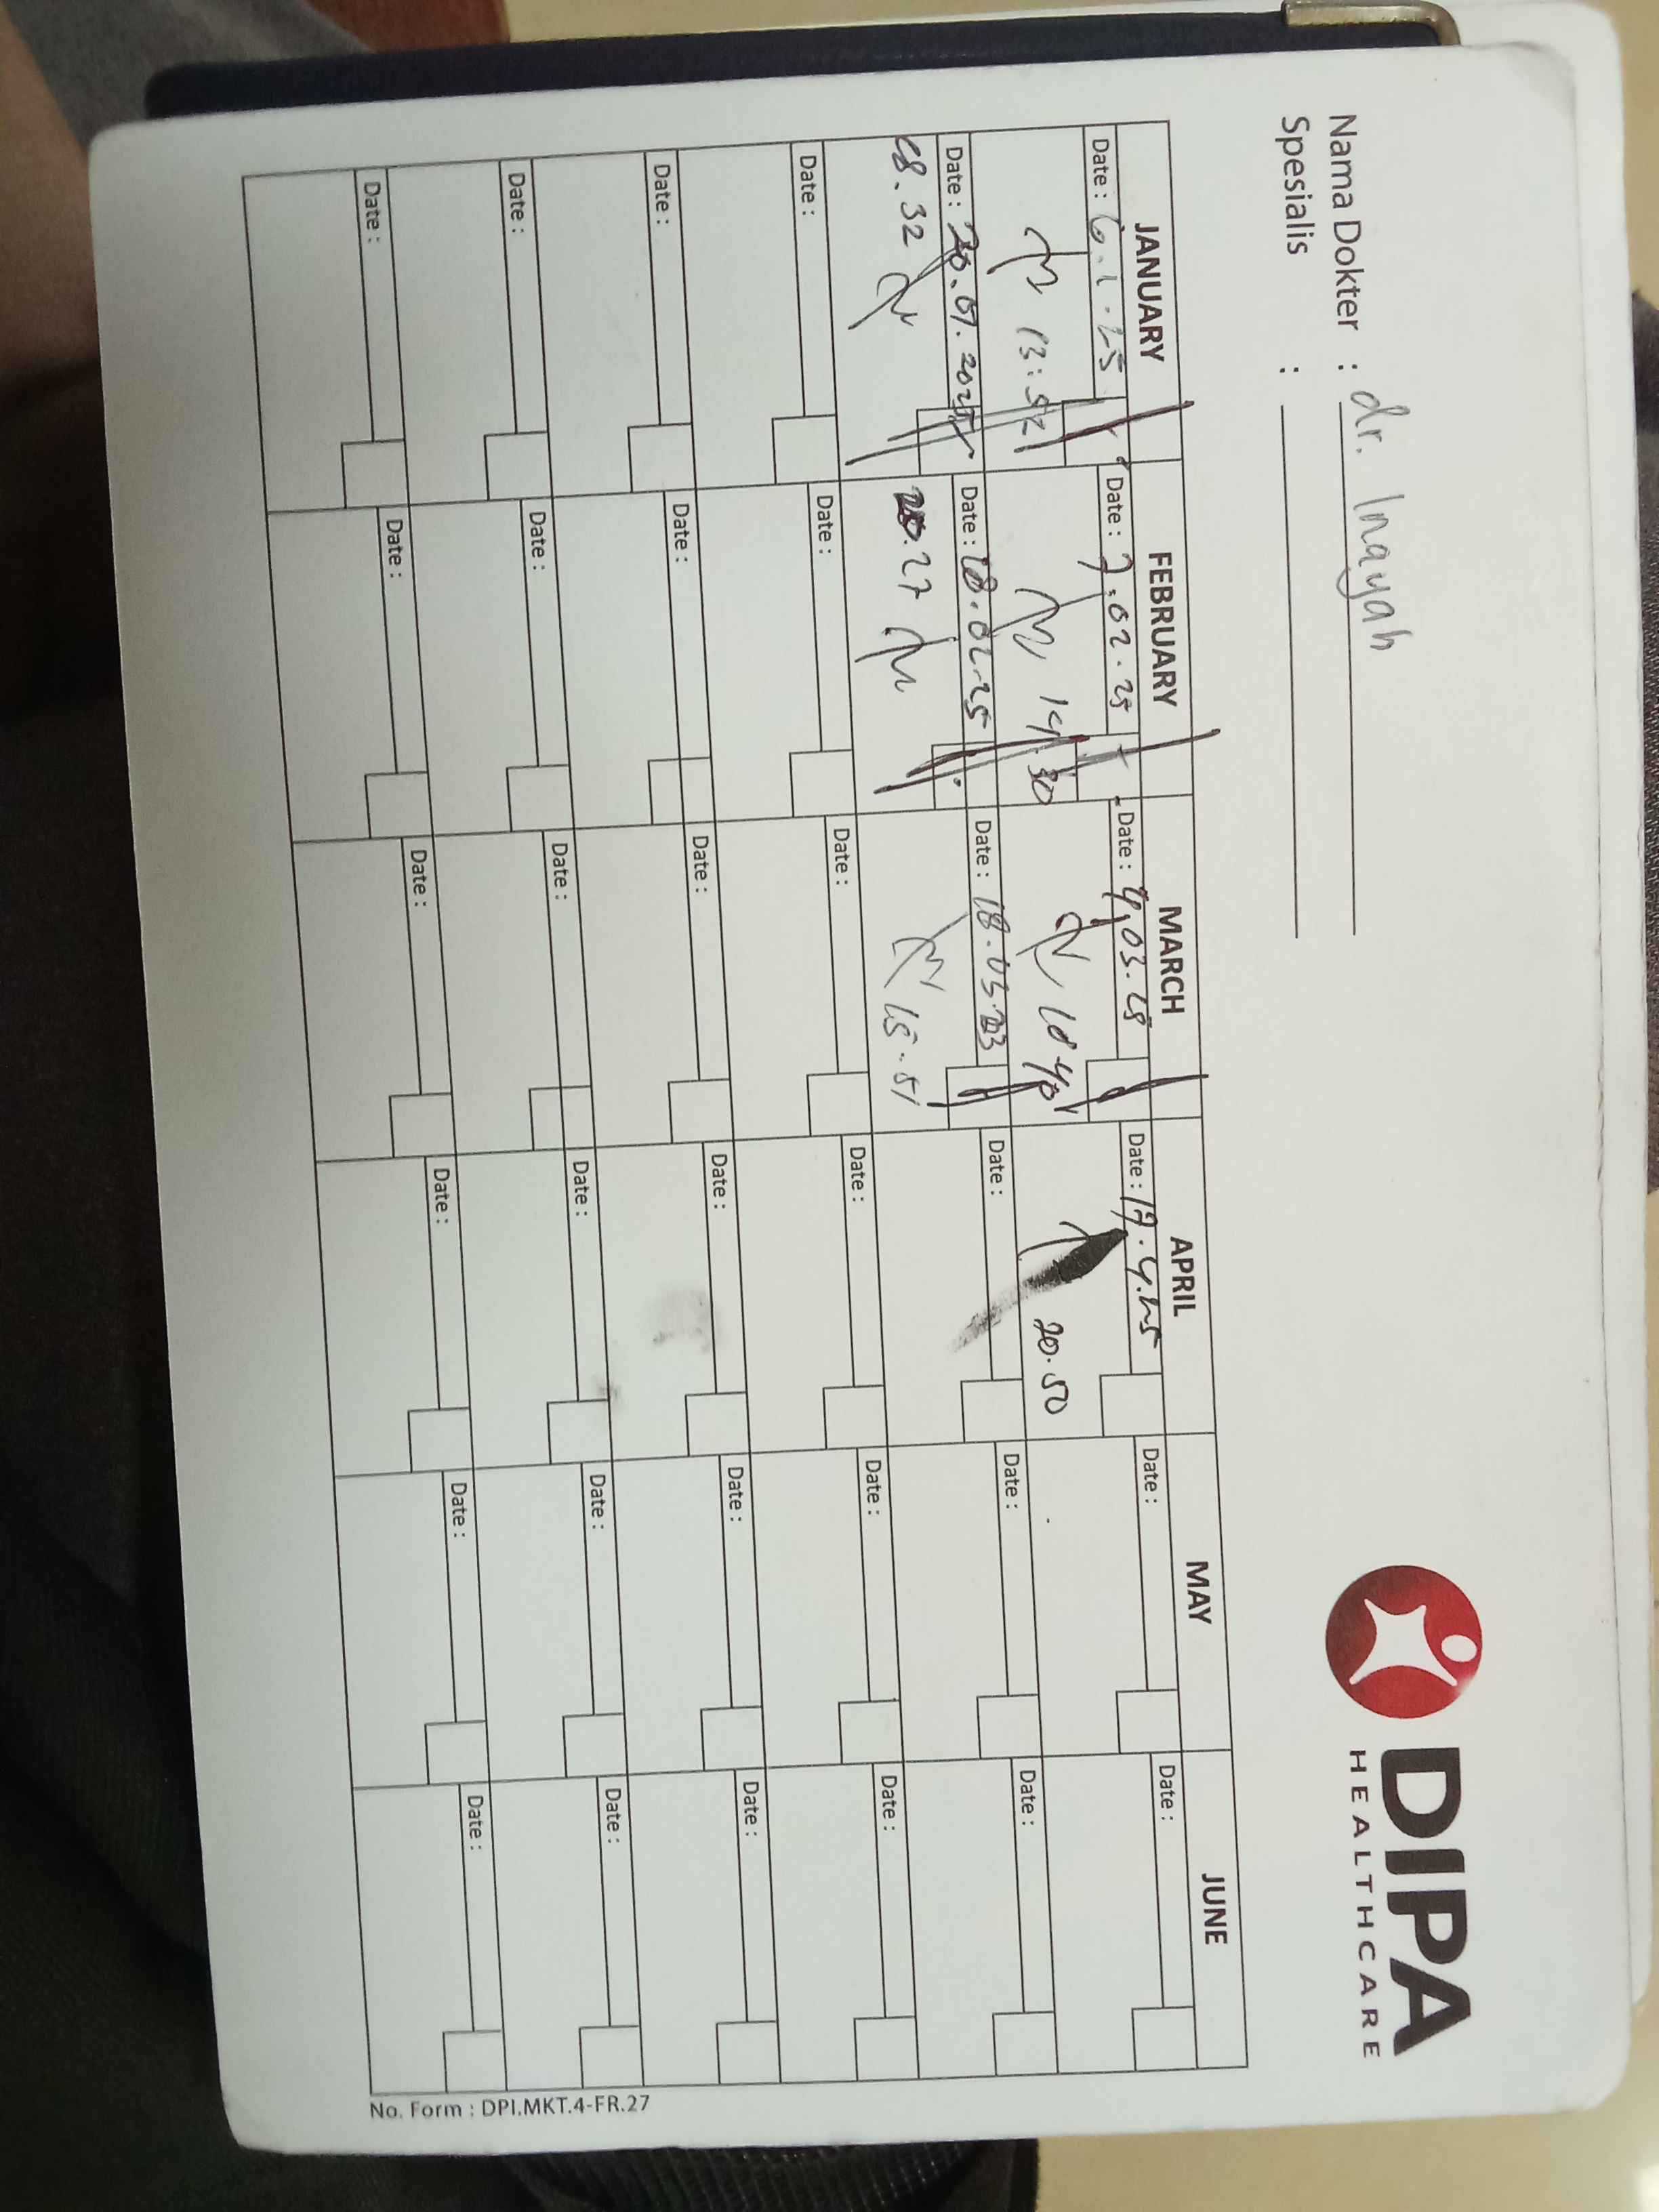 Nama Dokter : dr. Inayah
Spesialis :
DIPA
HEALTHCARE
JANUARY FEBRUARY MARCH APRIL MAY JUNE
Date : 6.1.25 Date : 7.02.25 Date : 4,03.25 Date : 17.4.25 Date : Date :
13:52 14.30 18 40 20.50
Date : 20.01.2025 Date : 18.02.25 Date : 18.03. Date : Date : Date :
18.32 20.27 15.51
Date : Date : Date : Date : Date : Date :
Date : Date : Date : Date : Date : Date :
Date : Date : Date : Date : Date : Date :
Date : Date : Date : Date : Date : Date :
No. Form : DPI.MKT.4-FR.27